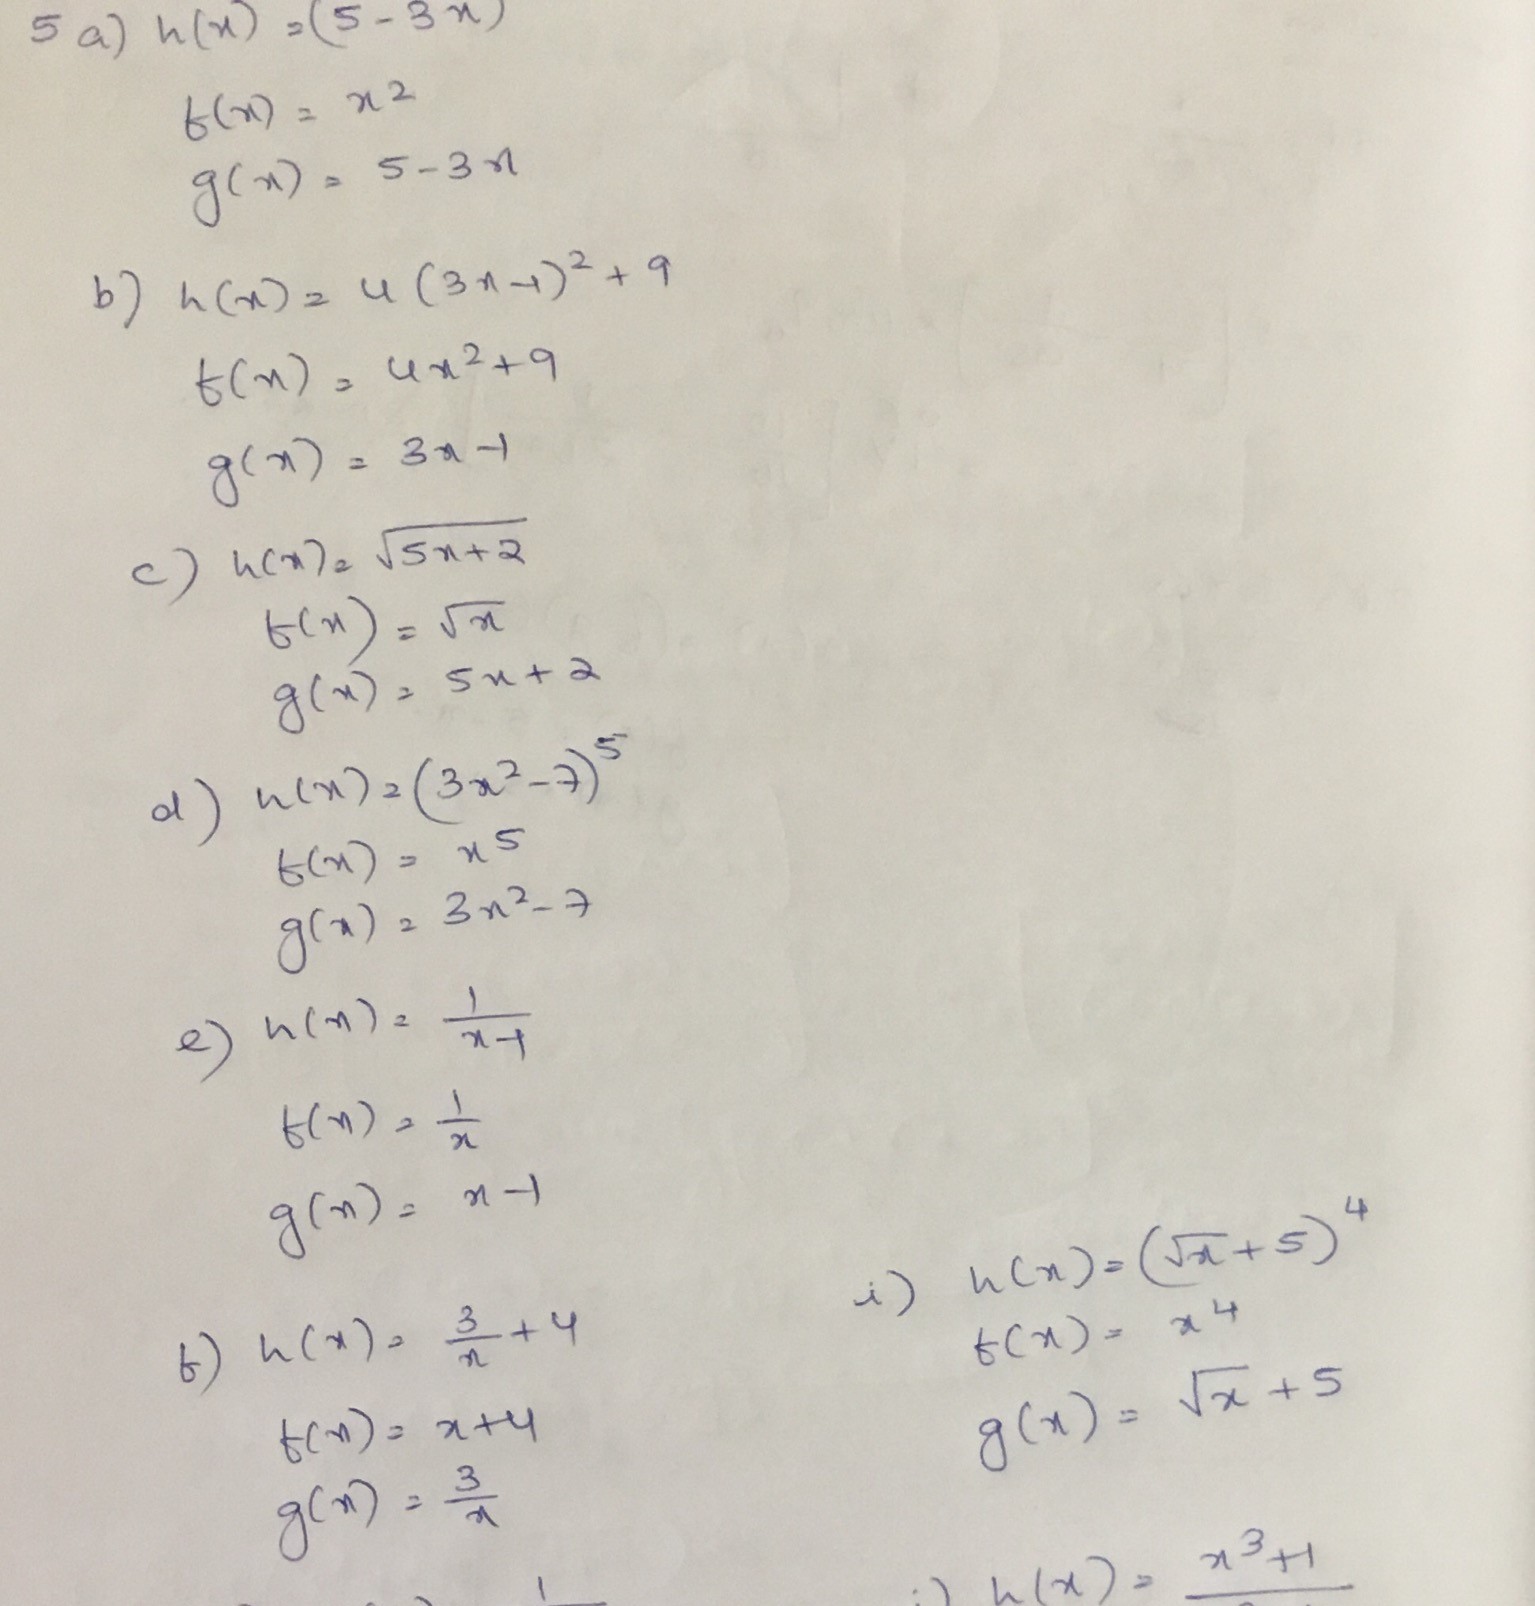 5 a) h(x) = (5-3x)
f(x) = x²
g(x) = 5-3x
b) h(x) = 4(3x-1)² + 9
f(x) = 4x²+9
g(x) = 3x-1
c) h(x) = √(5x+2)
f(x) = √x
g(x) = 5x+2
d) h(x) = (3x²-7)⁵
f(x) = x⁵
g(x) = 3x²-7
e) h(x) = 1/(x-1)
f(x) = 1/x
g(x) = x-1
f) h(x) = 3/x + 4
f(x) = x+4
g(x) = 3/x
i) h(x) = (√x+5)⁴
f(x) = x⁴
g(x) = √x + 5
h(x) = x³+1